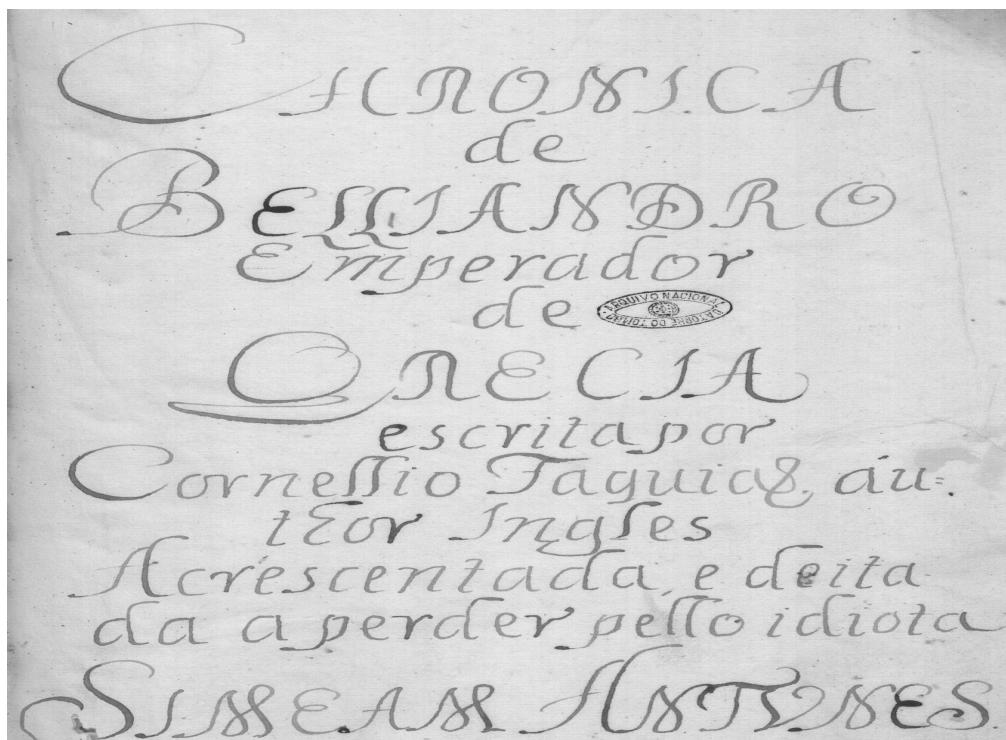 CHRONICA
de
BELLIANDRO
Emperador
de
ARQUIVO NACIONAL DA TORRE DO TOMBO
GRECIA
escrita por
Cornellio Taguias, au=
thor Ingles
Acrescentada, e deita
da a perder pello idiota
SIMEAM ANTUNES